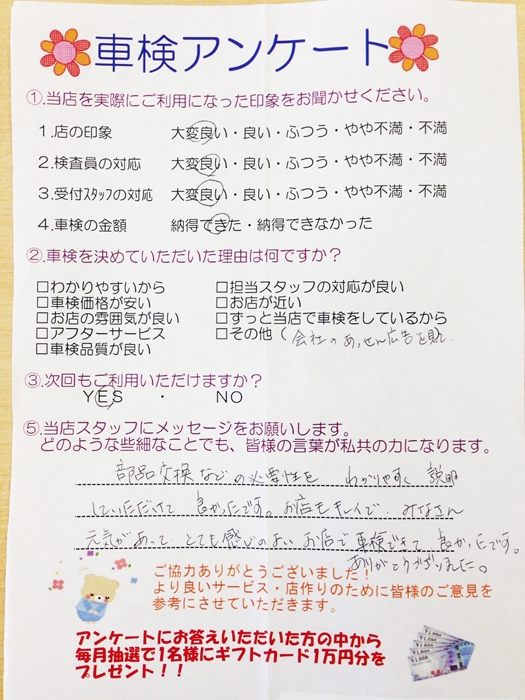 車検アンケート
①.当店を実際にご利用になった印象をお聞かせください。
1.店の印象 大変良い・良い・ふつう・やや不満・不満
2.検査員の対応 大変良い・良い・ふつう・やや不満・不満
3.受付ｽﾀｯﾌの対応 大変良い・良い・ふつう・やや不満・不満
4.車検の金額 納得できた・納得できなかった
②.車検を決めていただいた理由は何ですか？
□わかりやすいから □担当スタッフの対応が良い
□車検価格が安い □お店が近い
□お店の雰囲気が良い □ずっと当店で車検をしているから
□アフターサービス □その他（会社のあっせん広告を見て
□車検品質が良い
③.次回もご利用いただけますか？
YES ・ NO
⑤.当店スタッフにメッセージをお願いします。
どのような些細なことでも、皆様の言葉が私共の力になります。
部品交換などの必要性を わかりやすく 説明
していただけて 良かったです。お店もキレイで、みなさん
元気があって、とても感じのよい お店で車検できて 良かったです。
ありがとうございました。
ご協力ありがとうございました！
より良いサービス・店作りのために皆様のご意見を
参考にさせていただきます。
アンケートにお答えいただいた方の中から
毎月抽選で1名様にギフトカード1万円分を
プレゼント！！